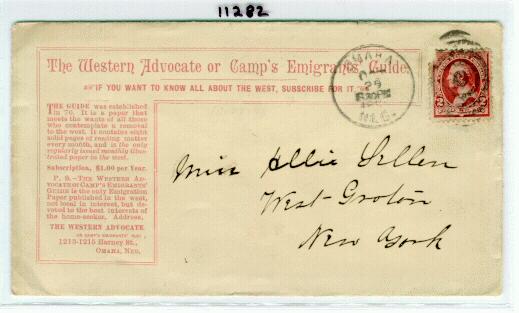 11282
The Western Advocate or Camp's Emigrants' Guide.
"IF YOU WANT TO KNOW ALL ABOUT THE WEST, SUBSCRIBE FOR IT."
THE GUIDE was established
in '76. It is a paper that
meets the wants of all those
who contemplate a removal
to the west. It contains eight
solid pages of reading matter
every month, and is the only
regularly issued monthly illus-
trated paper in the west.
Subscription, $1.00 per Year.
P. S.—THE WESTERN AD-
VOCATE OR CAMP'S EMIGRANTS'
GUIDE is the only Emigration
Paper published in the west,
not local in interest, but de-
voted to the best interests of
the home-seeker. Address,
THE WESTERN ADVOCATE
OR CAMP'S EMIGRANTS'
1213-1215 Harney St.,
OMAHA, NEB.
OMAHA
29
NEB.
2 2
Miss Allie Sellen
West-Groton
New York